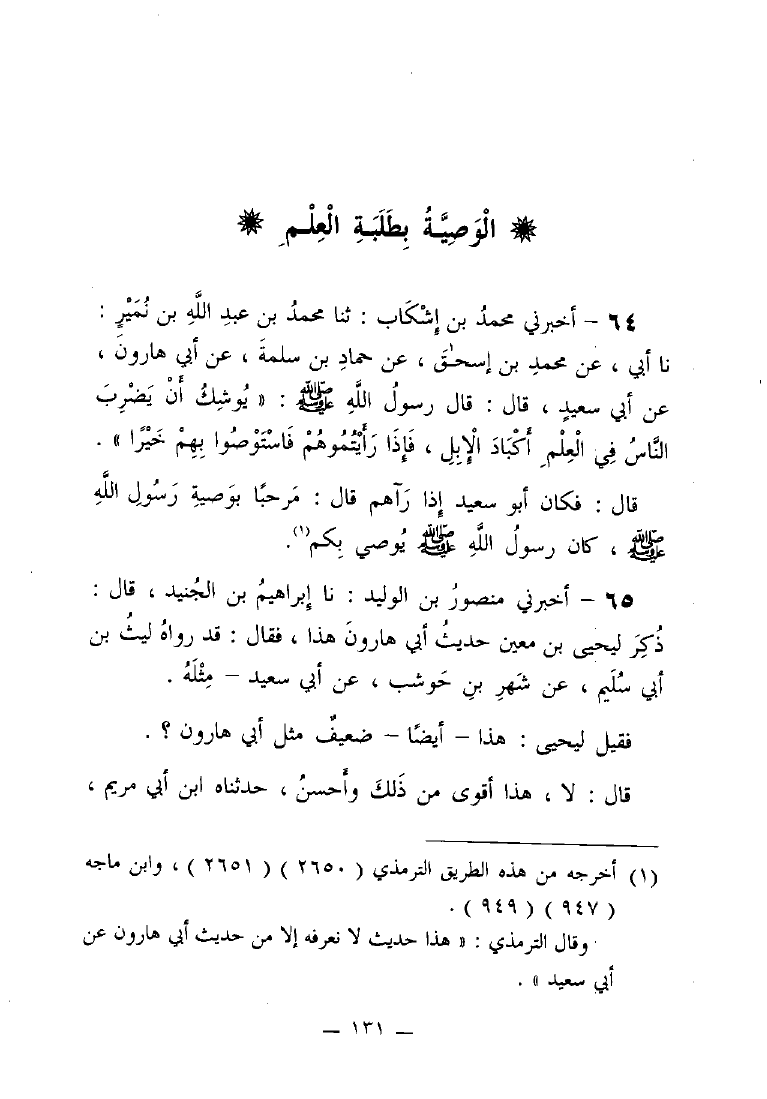 ❋ الْوَصِيَّةُ بِطَلَبَةِ الْعِلْمِ ❋
٦٤ – أخبرني محمدُ بن إشْكَاب : ثنا محمدُ بن عبدِ اللَّهِ بن نُمَيْرٍ :
نا أبي ، عن محمدِ بن إسحٰقَ ، عن حمادِ بن سلمةَ ، عن أبي هارونَ ،
عن أبي سعيدٍ ، قال : قال رسولُ اللَّهِ ﷺ : « يُوشِكُ أَنْ يَضْرِبَ
النَّاسُ فِي الْعِلْمِ أَكْبَادَ الْإِبِلِ ، فَإِذَا رَأَيْتُمُوهُمْ فَاسْتَوْصُوا بِهِمْ خَيْرًا » .
قال : فكان أبو سعيد إذا رَآهم قال : مَرحبًا بوَصيةِ رَسُولِ اللَّهِ
ﷺ ، كان رسولُ اللَّهِ ﷺ يُوصي بِكم(١).
٦٥ – أخبرني منصورُ بن الوليد : نا إبراهيمُ بن الجُنيد ، قال :
ذُكِرَ ليحيى بن معين حديثُ أبي هارونَ هذا ، فقال : قد رواهُ ليثُ بن
أبي سُلَيم ، عن شَهرِ بنِ حَوشب ، عن أبي سعيد – مِثْلَهُ .
فقيل ليحيى : هذا – أيضًا – ضعيفٌ مثل أبي هارون ؟ .
قال : لا ، هذا أقوى من ذَلكَ وأَحسنُ ، حدثناه ابن أبي مريم ،
(١) أخرجه من هذه الطريق الترمذي ( ٢٦٥٠ ) ( ٢٦٥١ ) ، وابن ماجه
( ٩٤٧ ) ( ٩٤٩ ) .
وقال الترمذي : « هذا حديث لا نعرفه إلا من حديث أبي هارون عن
أبي سعيد » .
– ١٣١ –